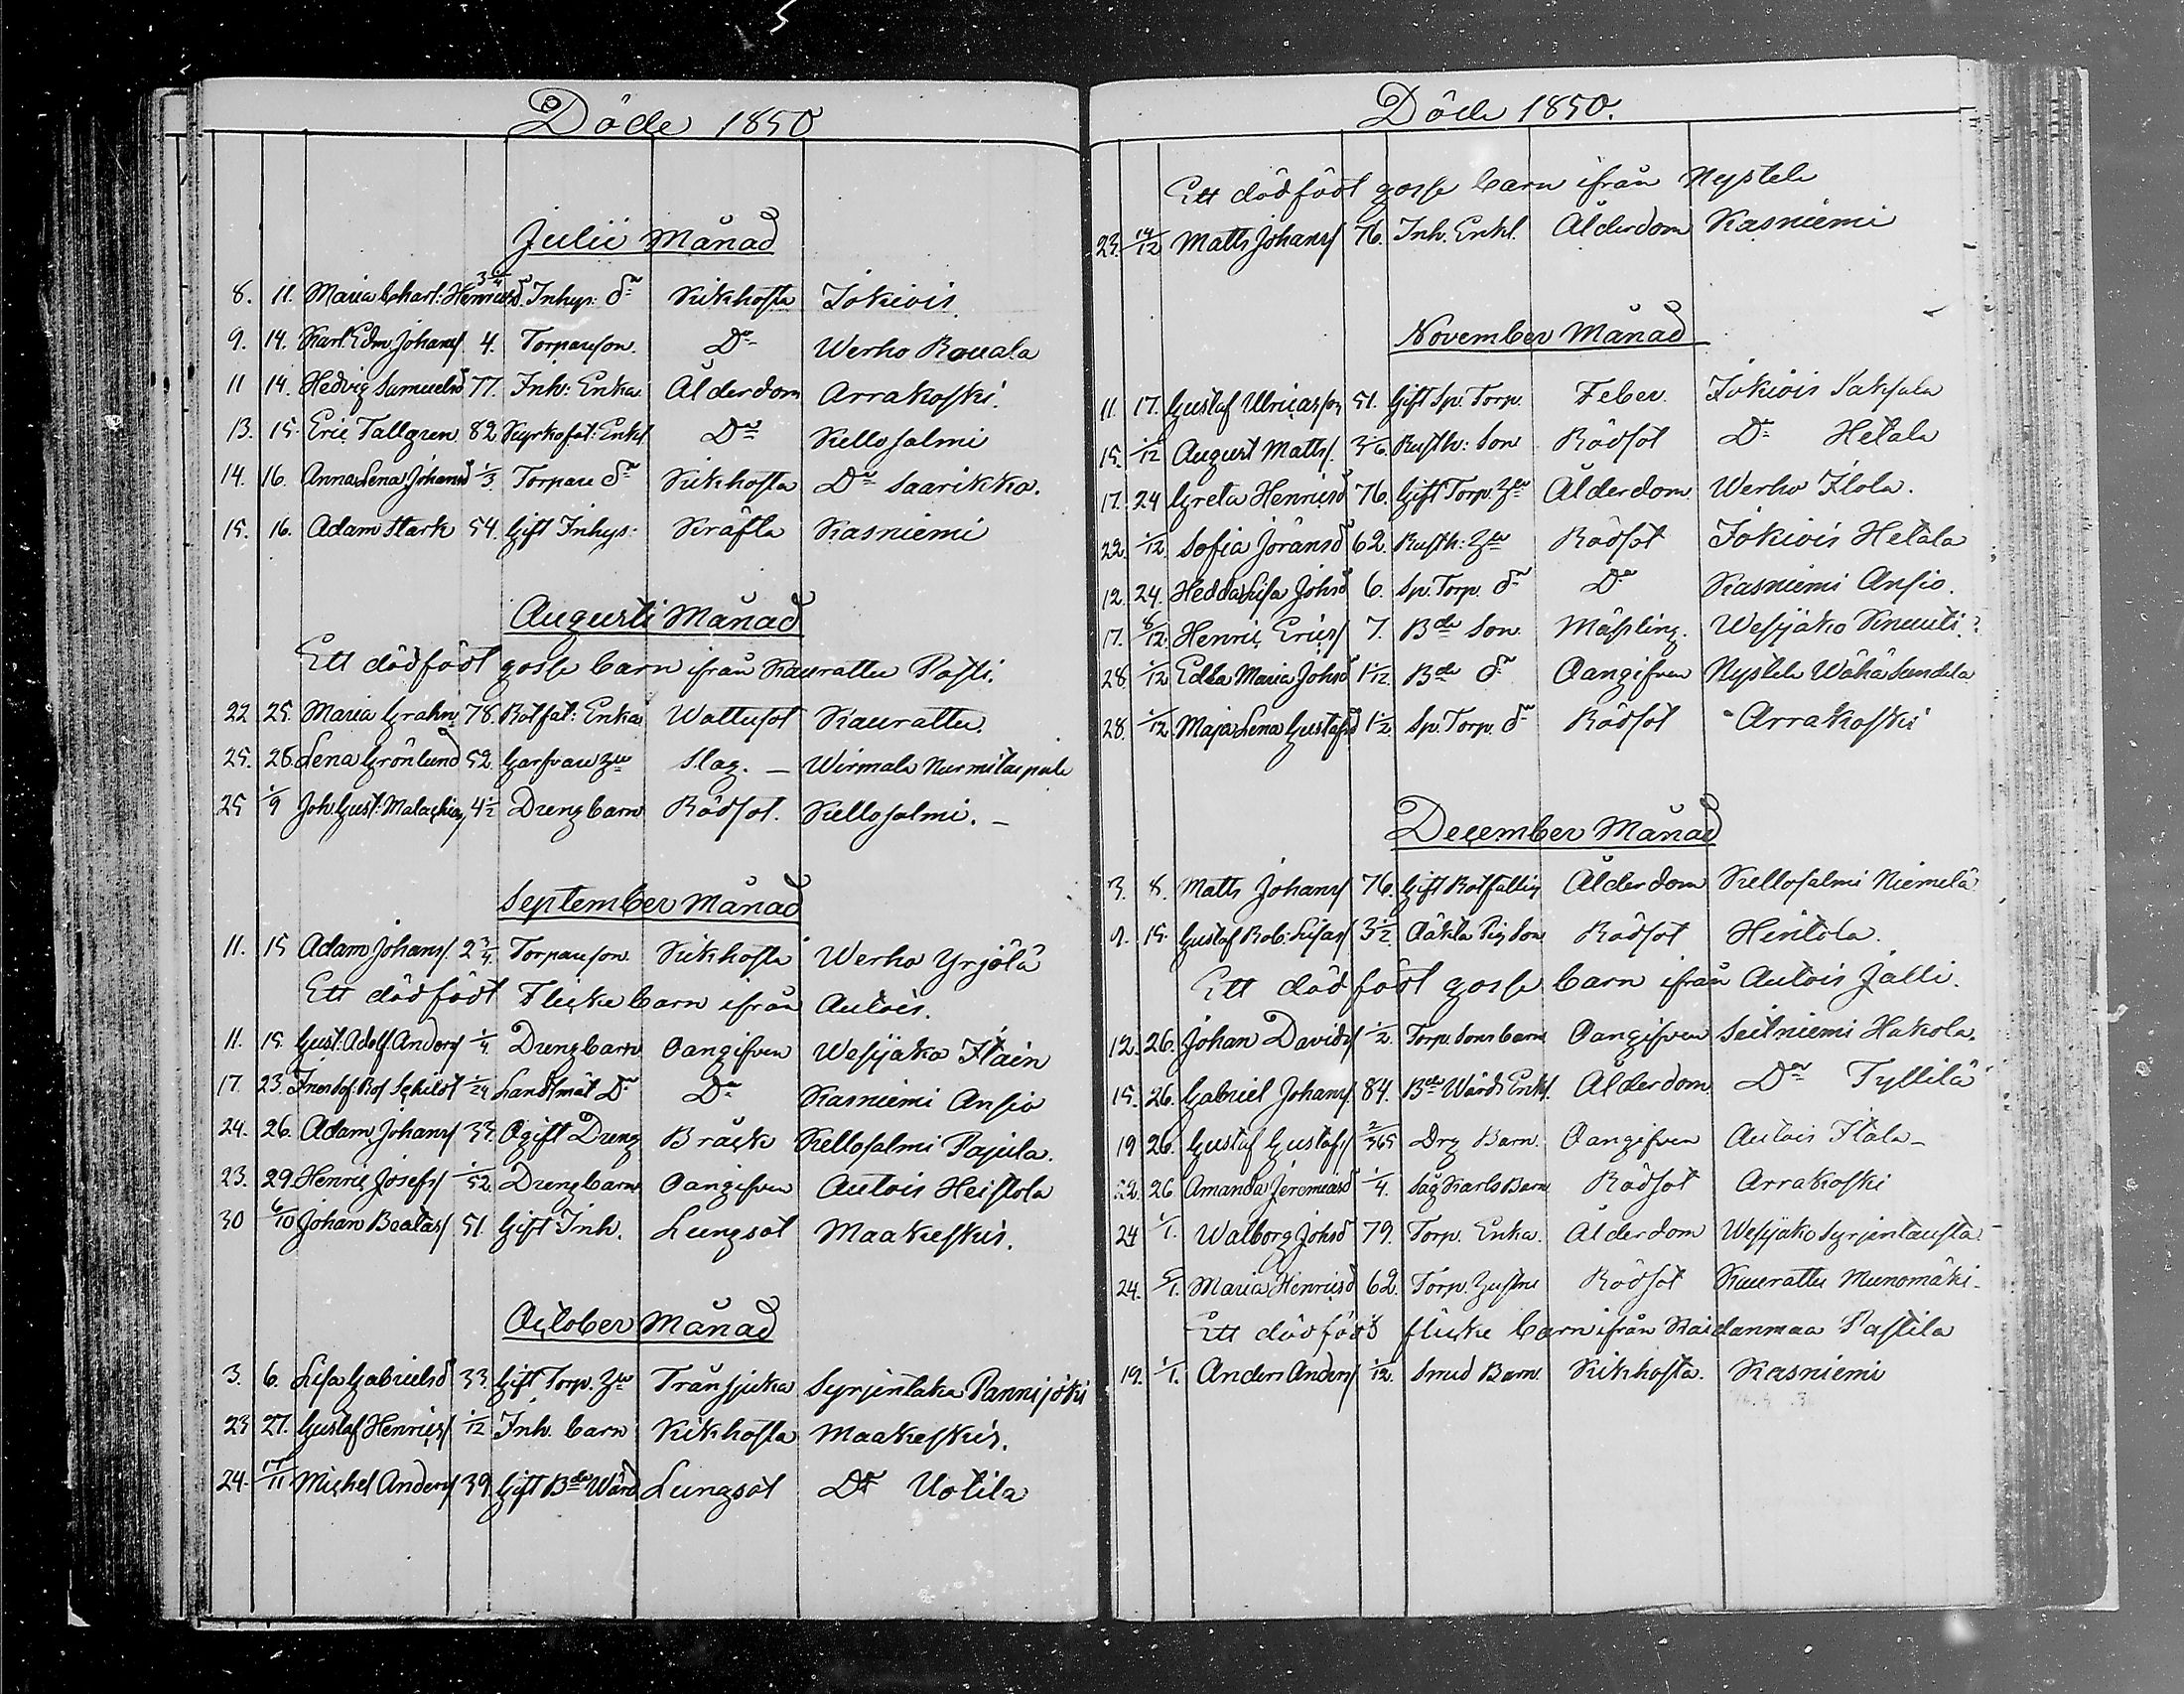 Döde 1850
Julii Månad
8. 11. Maria Charl: Henricsd. 3 6/4 Inhys: dr Kikhosta Jokiois.
9. 14. Karl Edm. Johans/ 4. Torpareson. Do Werho Rauala
11 14. Hedvig Samuelsd 77. Inh: Enka Ålderdom Arrakoski.
13. 15. Eric Tallgren 82 Kyrkofat: Enkl Do Kellosalmi
14. 16. Anna Lena Johansd 1/3. Torpare dr Kikhosta Do Saarikko.
15. 16. Adam Stark 54. Gift Inhys: Kräfta Kasniemi
Augusti Månad
Ett dödfödt gosse barn ifrån Kaurattu Pasti.
22 25. Maria Grahn 78. Rotfat: Enka Wattusot Kaurattu.
25. 28. Lena Grönlund 52. Garfvare Slag. — Wirmala Nurmitaipale
25 1/9 Joh. Gust: Malachias/ 4 1/2 Dreng barn Rödsot. Kellosalmi. —
September Månad
11. 15 Adam Johans/. 2 3/4. Torpareson. Kikhosta Werho Yrjölä
Ett dödfödt Flicke barn ifrån Autois.
11. 15. Gust: Adolf Anders/ 1/4 Drengbarn Oangifven Wesijako Itäin
17. 23. Sof: Schildt 1/24 Landtmät Dr Do Kasniemi Ansio
24. 26. Adam Johans/ 33. Ogift Dreng Bråck Kellosalmi Pajula.
23. 29. Henric Josefs/ 1/52. Drengbarn Oangifven Autois Heistola
30 6/10 Johan Beatas/ 51. Gift Inh. Lungsot Maakeskis.
October Månad
3. 6. Lisa Gabrielsd 33. Gift Torp. Tränsjuka Syrjentaka Pannijoki
23 27. Gustaf Henrics/ 1/12 Inh. barn Kikhosta Maakeskis.
24. 17/11 Michel Anders/ 39 Gift Bde Wärd Lungsot Do Uotila
Döde 1850.
Ett dödfödt gosse barn ifrån Nystele
23. 14/12 Matts Johans/ 76. Inh. Enkl. Ålderdom Kasniemi
November Månad
11. 17. Gustaf Ulricasson 51. Gift Sp. Torp. Feber. Jokiois Saksala
15. 1/12 August Matts/. 36. Rusth: Son Rödsot Do Hetala
17. 24 Greta Henricsd 76. Gift Torp. Ålderdom Werho Ilola.
22. 1/12 Sofia Jöransd 62. Rusth: Rödsot Jokiois Hetala
12. 24. Hedda Lisa Johsd 6. Sp. Torp. dr Do Kasniemi Ansio.
17. 8/12. Henric Erics/ 7. Bde Son. Mässling. Wesijako Knuuti.
28. 1/12 Edla Maria Johsd 1 1/12. Bde dr Oangifven Nystele Wähä Sandela
28. 1/12 Maja Lena Gustafsd 1 1/2 Sp. Torp. dr Rödsot Arrakoski
December Månad
3. 8. Matts Johans/ 76. Gift Rotfallig Ålderdom Kellosalmi Niemelä
9. 15. Gustaf Rob: Lisas/ 3 1/2 Oäkta Pig Son Rödsot Hentola.
Ett död födt gosse barn ifrån Autois Jalli.
12. 26. Johan Davids/ 1/2 Torp. Sons barn Oangifven Seitniemi Hakola.
15. 26. Gabriel Johans/ 84. Bde Wärds Enkl. Ålderdom. Do Tyllilä
19 26. Gustaf Gustafs/ 2/365 Drg Barn. Oangifven Autois Itala —
22. 26 Amanda Jeremiasd 1/4. Såg Karls Barn Rödsot Arrakoski
24 1/1. Walborg Johsd 79. Torp. Enka. Ålderdom Wesijako Syrjentausta
24. 5/1. Maria Henricsd 62. Torp. Hustru Rödsot Kaurattu Munomäki.
Ett dödfödt flicke barn ifrån Kaidanmaa Pastila
19. 1/1. Anders Anders/ 1/12. Smed Barn. Kikhosta. Kasniemi